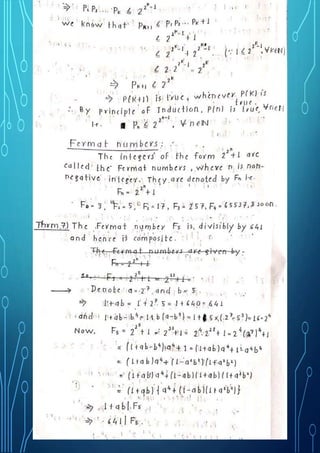 ⇒ P₁P₂... Pₖ ≤ 2^(2^k-1)
we know that Pₖ₊₁ ≤ P₁P₂... Pₖ+1
≤ 2^(2^k-1) + 1
≤ 2^(2^k-1) + 2^(2^k-1) (∵ 1 ≤ 2^(2^k-1), ∀k∈N)
≤ 2·2^(2^k-1) = 2^(2^k)
⇒ Pₖ₊₁ ≤ 2^(2^k)
⇒ P(k+1) is true, whenever P(k) is
true.
∴ By principle of Induction, P(n) is true, ∀n∈N
i.e. Pₙ ≤ 2^(2^n-1), ∀n∈N
Fermat numbers :
The integers of the form 2^(2^n)+1 are
called the Fermat numbers, where n is non-
negative integer. They are denoted by Fₙ i.e.
Fₙ = 2^(2^n)+1
F₀ = 3, F₁ = 5, F₂ = 17, F₃ = 257, F₄ = 65537, & so on.
Thrm.7) The Fermat number F₅ is divisibly by 641
and hence it composite.
The Fermat numbers are given by:
Fₙ = 2^(2^n)+1
F₅ = 2^(2^5)+1 = 2^32+1
→ Denote a = 2^7 and b = 5
⇒ 1+ab = 1+2^7·5 = 1+640 = 641
and 1+ab-b^4 = 1+b(a-b^3) = 1+5×(2^7-5^3) = 16 = 2^4
Now, F₅ = 2^(2^5)+1 = 2^32+1 = 2^4·2^28+1 = 2^4(2^7)^4+1
= (1+ab-b^4)a^4+1 = (1+ab)a^4+1-a^4b^4
= (1+ab)a^4+(1-a^2b^2)(1+a^2b^2)
= (1+ab)a^4+(1-ab)(1+ab)(1+a^2b^2)
= (1+ab){a^4+(1-ab)(1+a^2b^2)}
⇒ 1+ab|F₅
⇒ 641|F₅